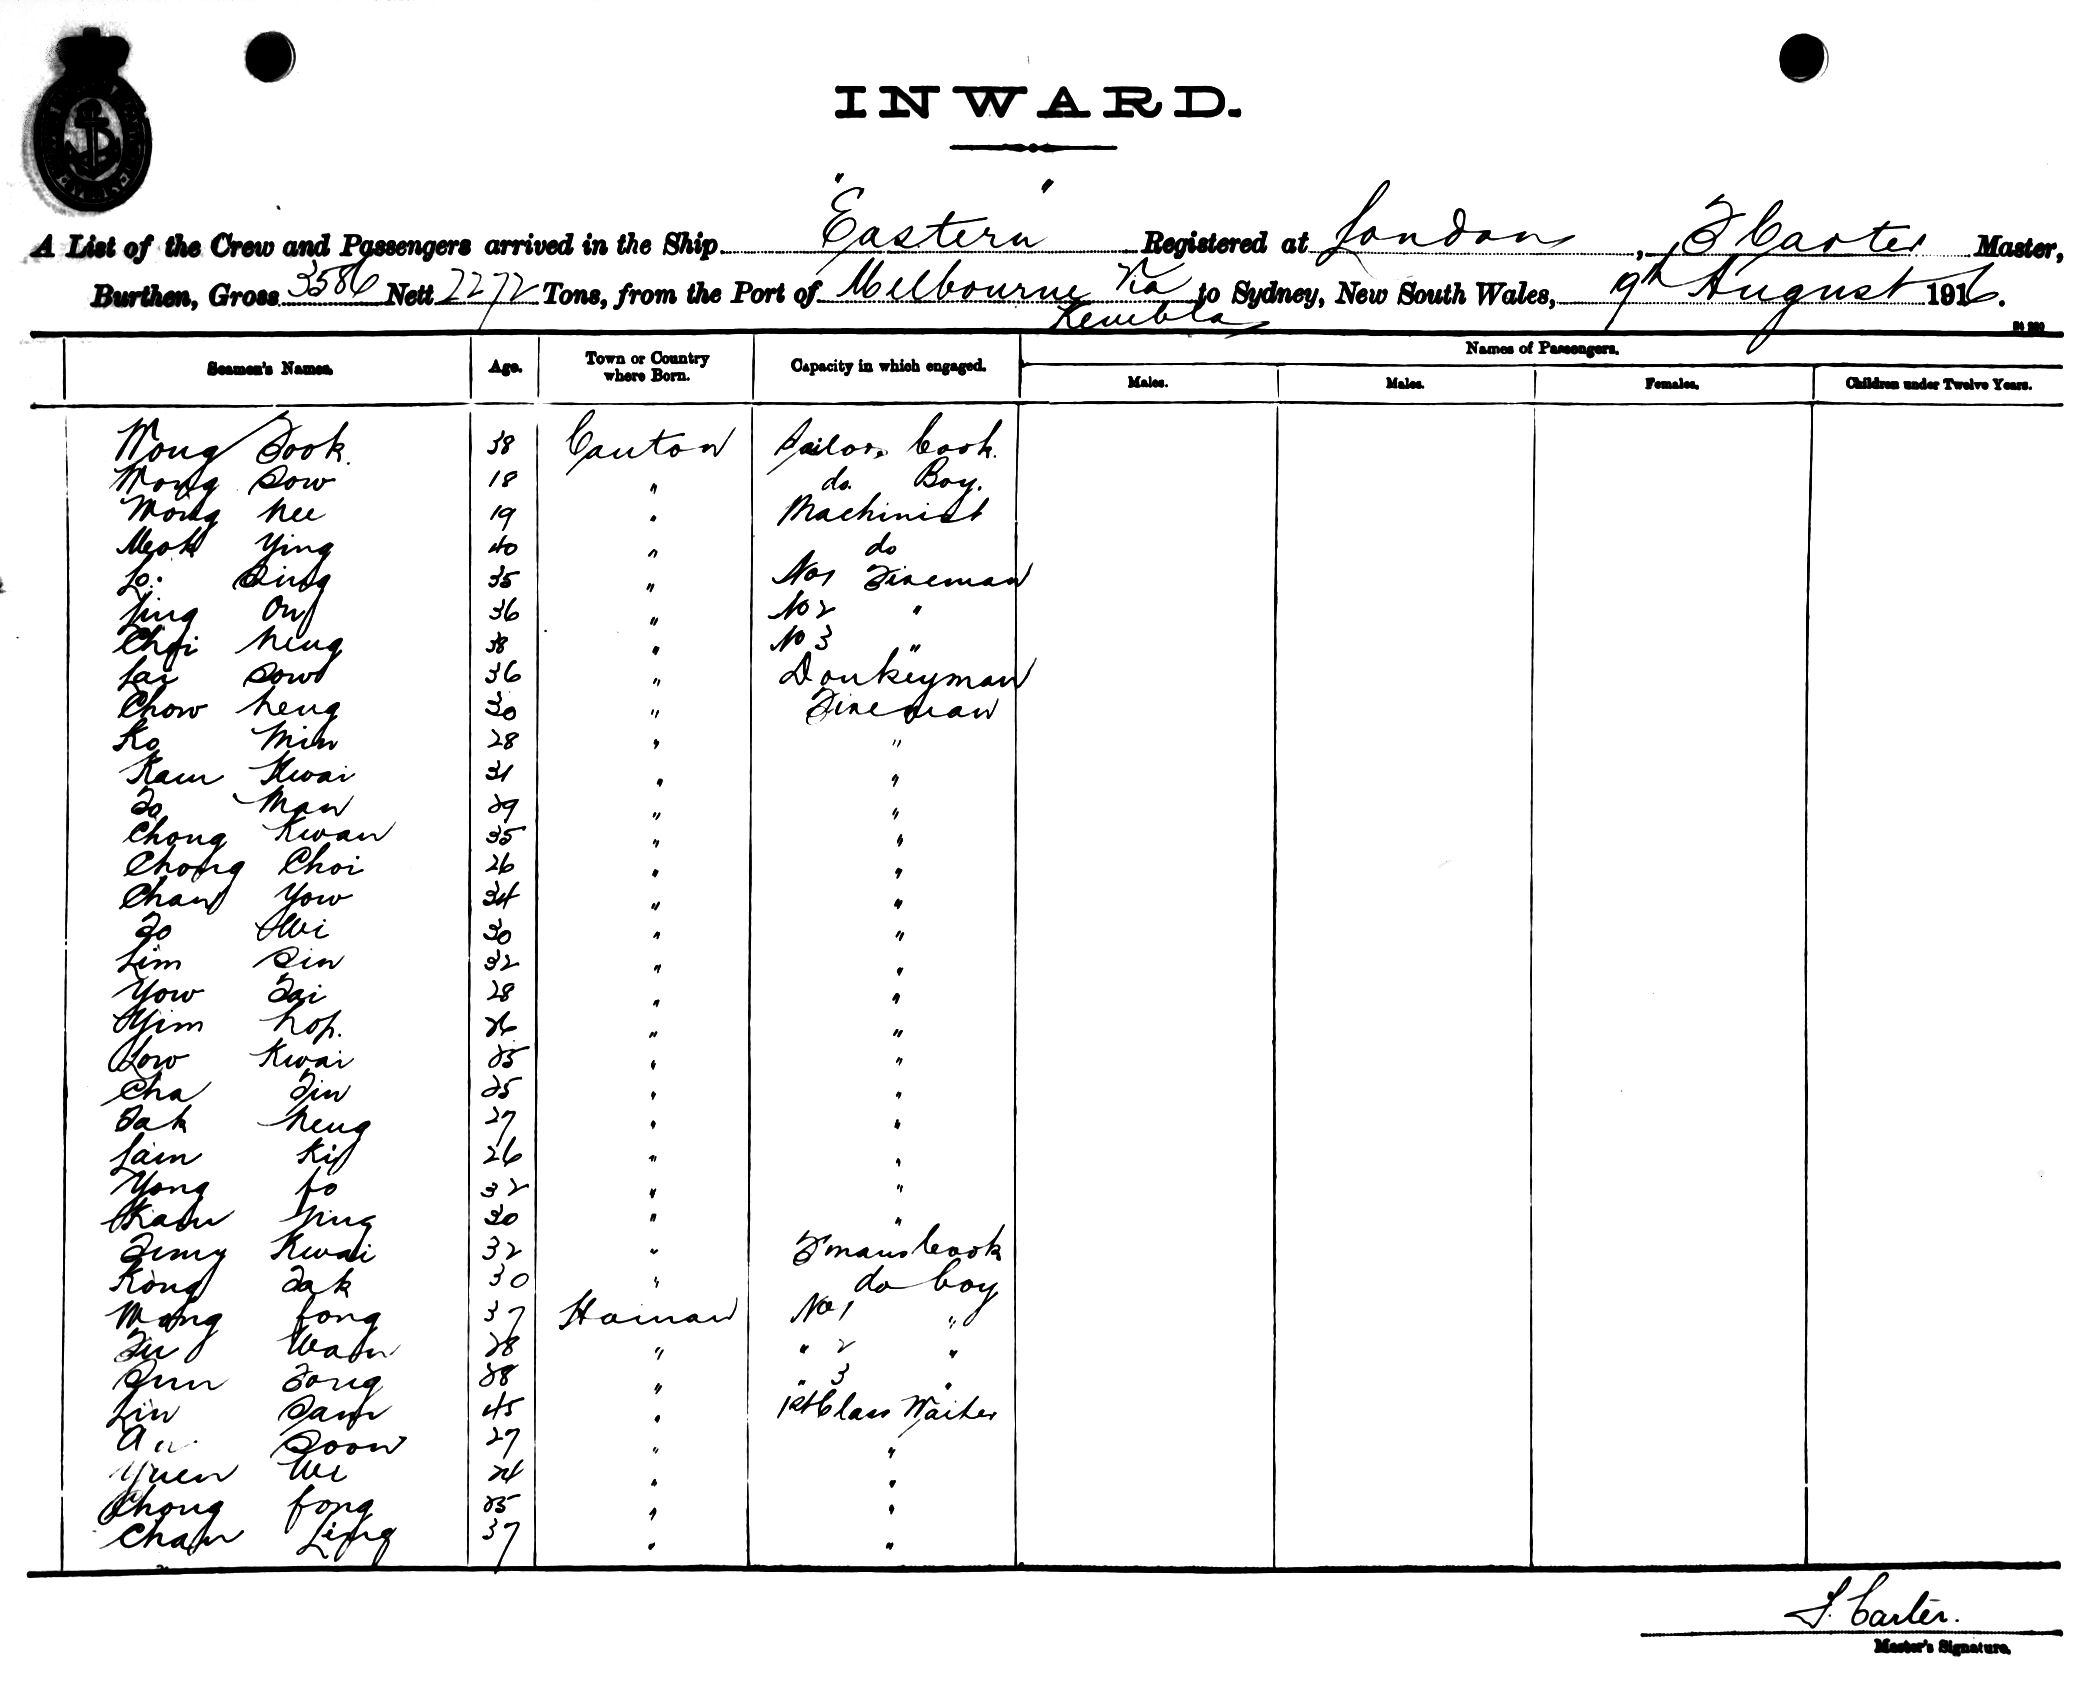 INWARD.
A List of the Crew and Passengers arrived in the Ship "Eastern" Registered at London, F Carter Master,
Burthen, Gross 3586 Nett 2272 Tons, from the Port of Melbourne Via Kembla to Sydney, New South Wales, 9th August 1916.
Seamen's Names. Age. Town or Country where Born. Capacity in which engaged. Names of Passengers.
Males. Males. Females. Children under Twelve Years.
Wong Fook. 38 Canton Sailors Cook.
Wong Sow 18 " do. Boy.
Wong Hee 19 " Machinist
Mook Ying 40 " do
Lo Sing 35 " No1 Fireman
Ling On 36 " No 2 "
Choi Heng 38 " No 3 "
Lai Sow 36 " Donkeyman
Chow Heng 30 " Fireman
Ko Min 28 " "
Kam Kwai 31 " "
Fo Man 29 " "
Chong Kwan 35 " "
Chong Choi 26 " "
Chan Yow 34 " "
Fo Wi 30 " "
Lim Sin 32 " "
Yow Fai 28 " "
Yim Hop. 26 " "
Low Kwai 25 " "
Cha Fin 25 " "
Fak Heng 27 " "
Lam Ki 26 " "
Yong Fo 32 " "
Kam Ying 30 " "
Fung Kwai 32 " F'mans Cook
Kong Fak 30 " do boy
Wong Fong 37 Hainan No 1 "
Fu Wan 28 " " 2 "
Sun Fong 28 " " 3 "
Lin Sam 45 " 1st Class Waiter
Soon 27 " "
Yuen Wi 24 " "
Chong Fong 25 " "
Chan Ling 37 " "
F. Carter.
Master's Signature.